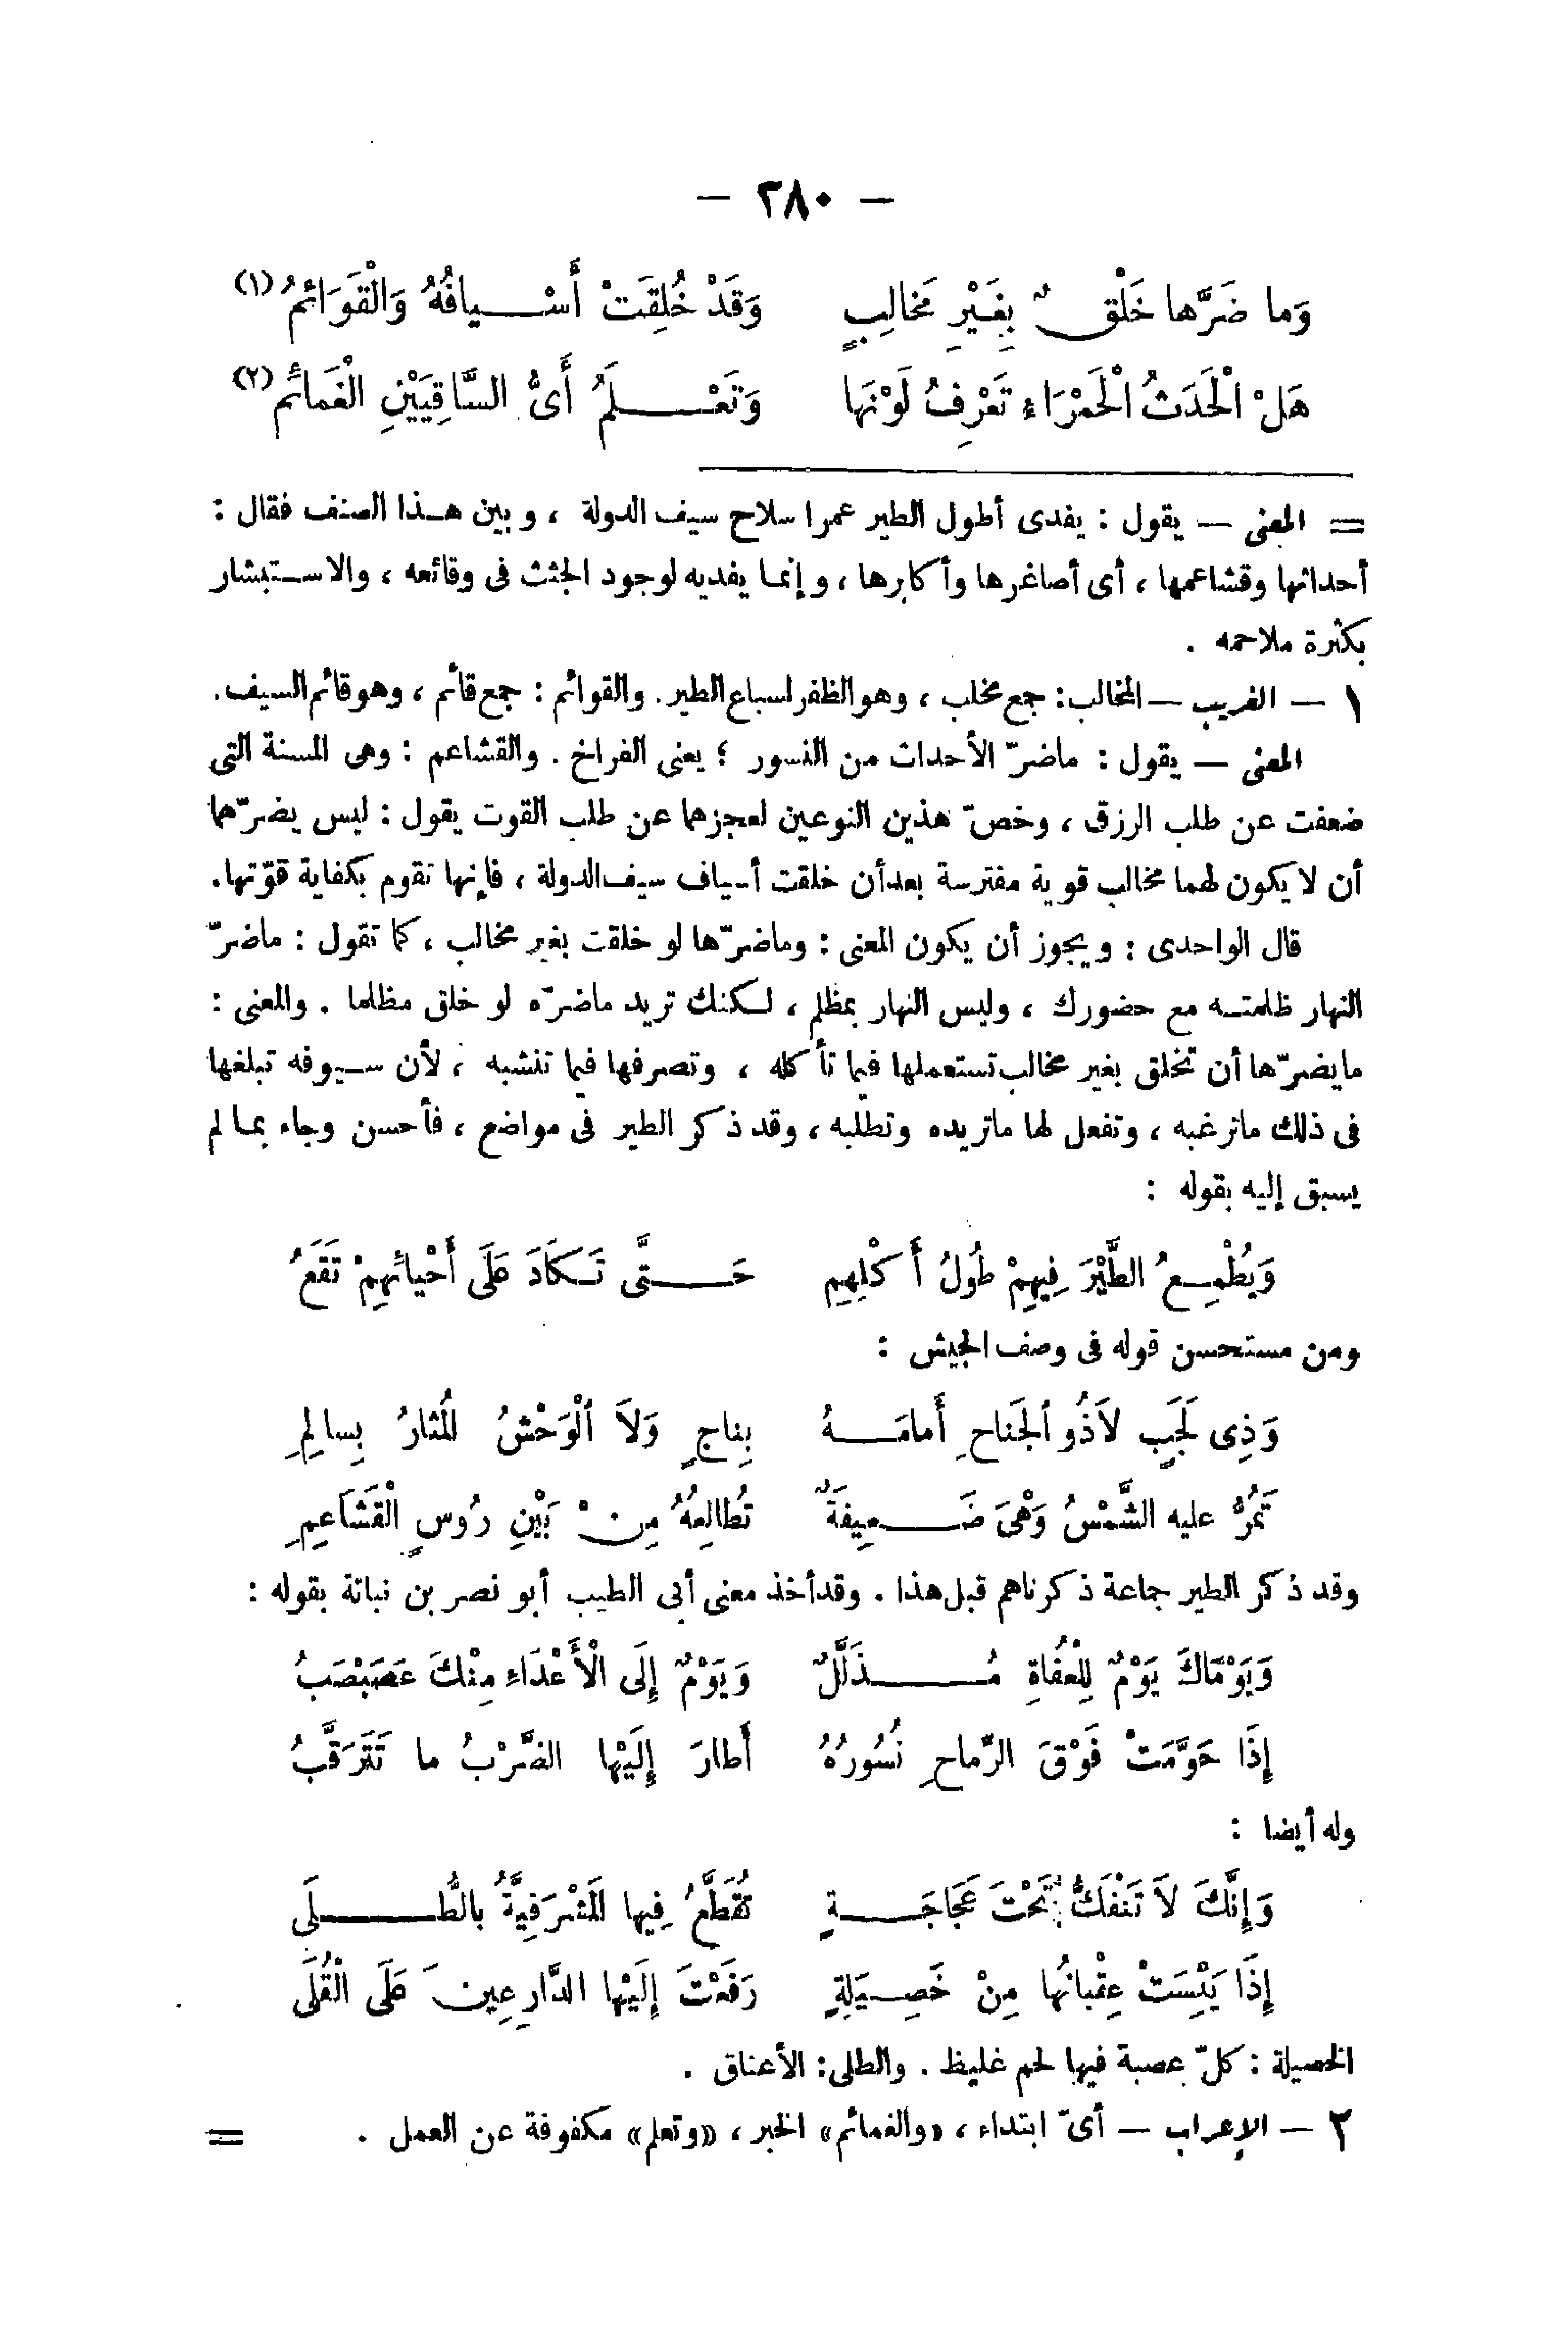 — ٣٨٠ —
وَما ضَرَّها خَلْقٌ بِغَيْرِ مَخالِبٍ وَقَدْ خُلِقَتْ أَسْيافُهُ وَالْقَوَائِمُ (١)
هَلْ الْحَدَثُ الْحَمْرَاءِ تَعْرِفُ لَوْنَهَا وَتَعْلَمُ أَىُّ السَّاقِيَيْنِ الْغَمائِمُ (٢)
= المعنى — يقول : يفدى أطول الطير عمرا سلاح سيف الدولة ، وبين هذا الصنف فقال :
أحداثها وقشاعمها ، أى أصاغرها وأكابرها ، وإنما يفديه لوجود الجثث فى وقائعه ، والاستبشار
بكثرة ملاحمه .
١ — الغريب — المخالب : جمع مخلب ، وهو الظفر لسباع الطير . والقوائم : جمع قائم ، وهو قائم السيف .
المعنى — يقول : ماضرّ الأحداث من النسور ؛ يعنى الفراخ . والقشاعم : وهى المسنة التى
ضعفت عن طلب الرزق ، وخصّ هذين النوعين لعجزهما عن طلب القوت يقول : ليس يضرّهما
أن لا يكون لهما مخالب قوية مفترسة بعد أن خلقت أسياف سيف الدولة ، فإنها تقوم بكفاية قوّتها .
قال الواحدى : ويجوز أن يكون المعنى : وماضرّها لو خلقت بغير مخالب ، كما تقول : ماضرّ
النهار ظلمته مع حضورك ، وليس النهار بمظلم ، لكنك تريد ماضرّه لو خلق مظلما . والمعنى :
مايضرّها أن تخلق بغير مخالب تستعملها فيما تأكله ، وتصرفها فيما تنشبه ، لأن سيوفه تبلغها
فى ذلك ماترغبه ، وتفعل لها ماتريده وتطلبه ، وقد ذكر الطير فى مواضع ، فأحسن وجاء بما لم
يسبق إليه بقوله :
وَيُطْمِعُ الطَّيْرَ فِيهِمْ طُولُ أَكْلِهِمِ حَتَّى تَكَادَ عَلَى أَحْيائِهِمْ تَقَعُ
ومن مستحسن قوله فى وصف الجيش :
وَذِى لَجَبٍ لاَذُو الْجَناحِ أَمامَهُ بِناجٍ وَلاَ الْوَحْشُ الْمُثارُ بِسالِمِ
تَمُرُّ عليه الشَّمْسُ وَهْىَ ضَعِيفَةٌ تُطالِعُهُ مِنْ بَيْنِ رُوسِ الْقَشَاعِمِ
وقد ذكر الطير جماعة ذكرناهم قبل هذا . وقد أخذ معنى أبى الطيب أبو نصر بن نباتة بقوله :
وَيَوْمَاكَ يَوْمٌ لِلْعُفَاةِ مُذَلَّلٌ وَيَوْمٌ إِلَى الْأَعْدَاءِ مِنْكَ عَصَبْصَبُ
إِذَا حَوَّمَتْ فَوْقَ الرِّماحِ نُسُورُهُ أَطارَ إِلَيْها الضَّرْبُ ما تَتَرَقَّبُ
وله أيضا :
وَإِنَّكَ لاَ تَنْفَكُّ تَحْتَ عَجَاجَةٍ تُقَطَّعُ فِيها الْمَشْرَفِيَّةُ بالطُّلَى
إِذَا يَئِسَتْ عِقْبانُها مِنْ خَصِيلَةٍ رَفَعْتَ إِلَيْها الدَّارِعِينَ عَلَى الْقُلَى
الخصيلة : كلّ عصبة فيها لحم غليظ . والطلى : الأعناق .
٢ — الإعراب — أىّ ابتداء ، «والغمائم» الخبر ، «وتعلم» مكفوفة عن العمل . =